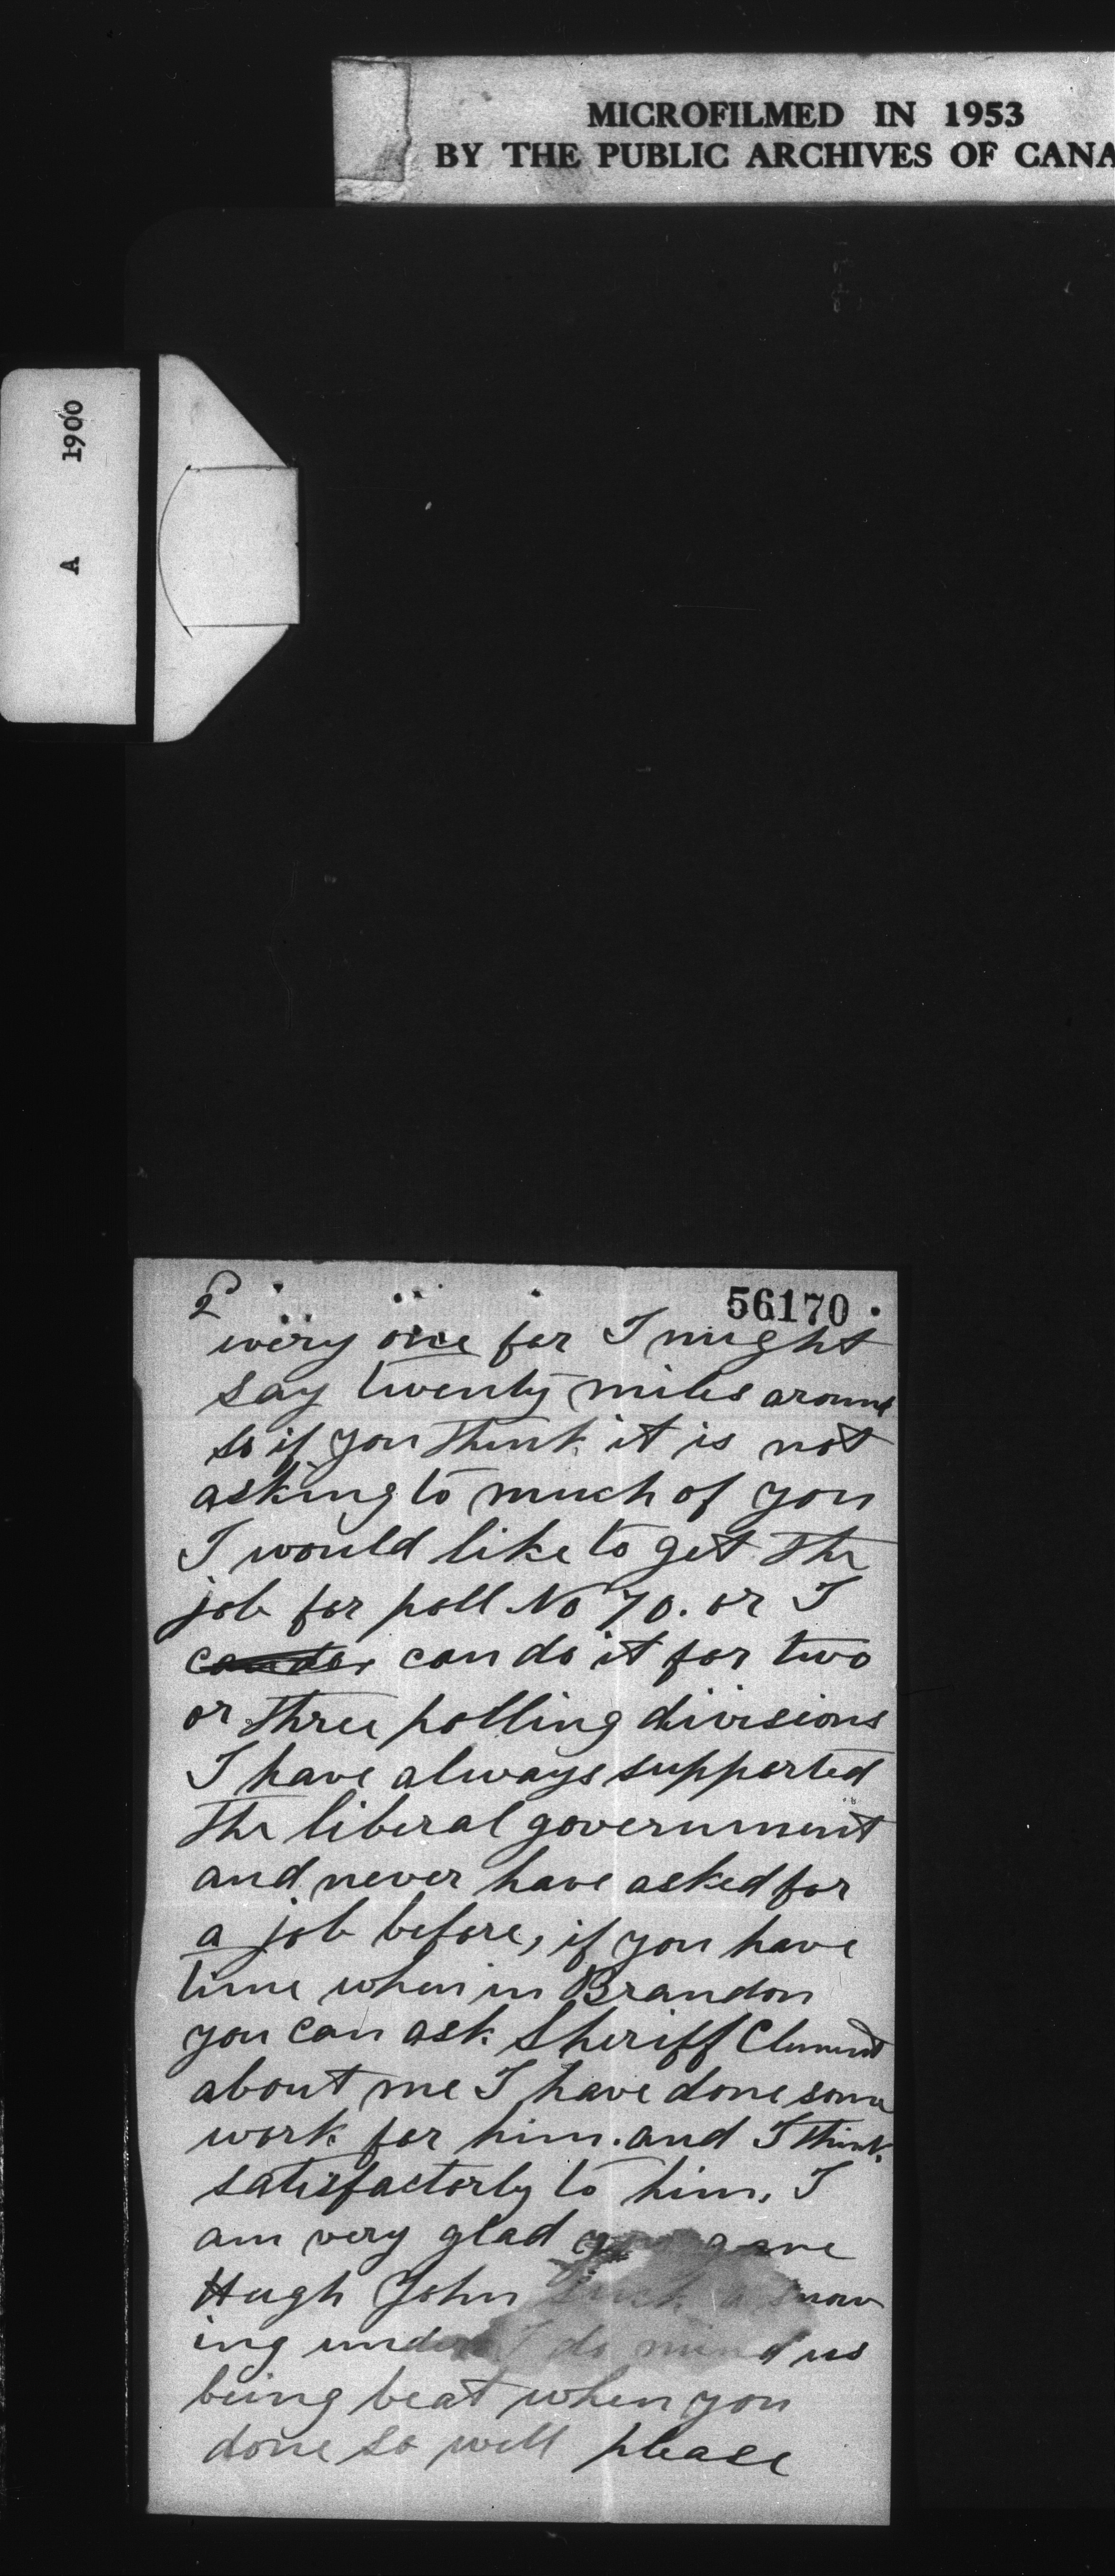 MICROFILMED IN 1953
BY THE PUBLIC ARCHIVES OF CANA
A 1900
2
56170
every one for I might
say twenty miles around
so if you think it is not
asking to much of you
I would like to get the
job for poll No 70. or I
can do it for two
or three polling divisions
I have always supported
the liberal government
and never have asked for
a job before, if you have
time when in Brandon
you can ask Sheriff Clement
about me I have done some
work for him. and I think
satisfactorly to him, I
am very glad you gave
Hugh John such a snow
ing under I do mind us
being beat when you
done so well please